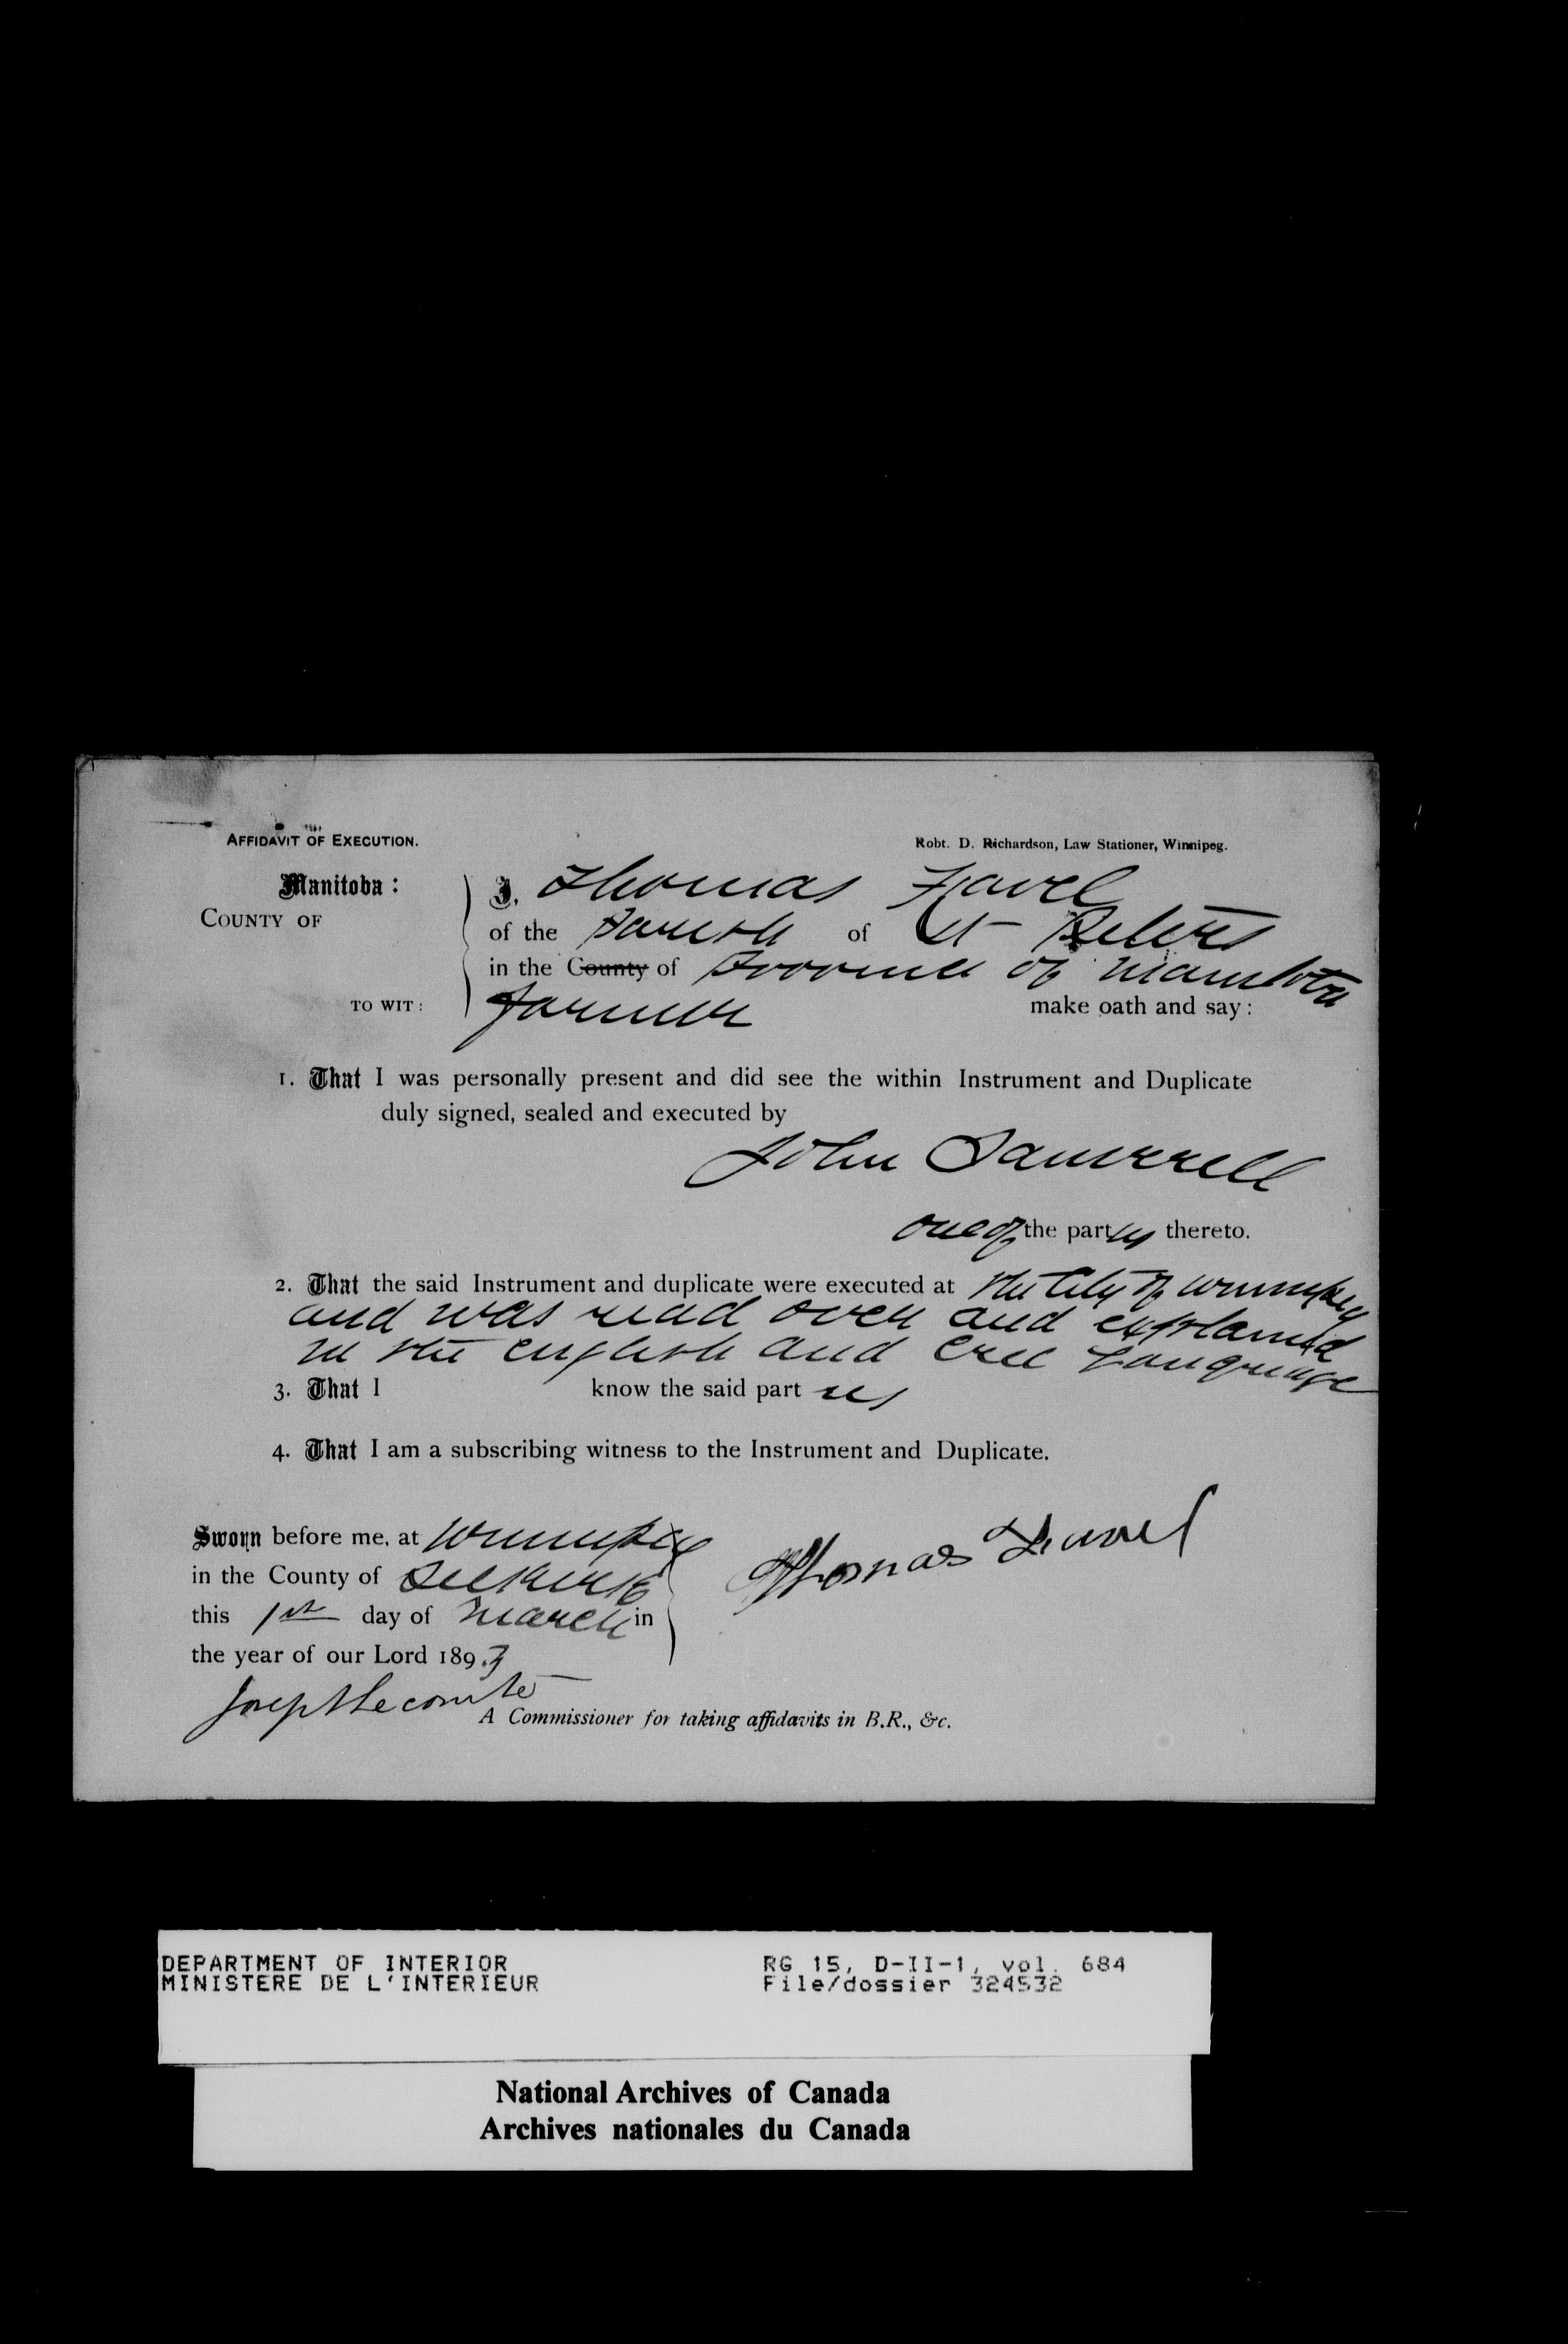 AFFIDAVIT OF EXECUTION.
Robt. D. Richardson, Law Stationer, Winnipeg.
Manitoba:
COUNTY OF
TO WIT:
I, Thomas Favel
of the Parish of St Peters
in the County of Province of Manitoba
farmer make oath and say:
1. That I was personally present and did see the within Instrument and Duplicate
duly signed, sealed and executed by
John
one of the parties thereto.
2. That the said Instrument and duplicate were executed at the City of Winnipeg
and was read over and explained
in the english and cree language
3. That I know the said parties
4. That I am a subscribing witness to the Instrument and Duplicate.
Sworn before me, at Winnipeg
in the County of Selkirk
this 1st day of March in
the year of our Lord 1893
Thomas Favel
Joseph Lecomte
A Commissioner for taking affidavits in B.R., &c.
DEPARTMENT OF INTERIOR
MINISTERE DE L'INTERIEUR
RG 15, D-II-1, vol. 684
File/dossier 324532
National Archives of Canada
Archives nationales du Canada